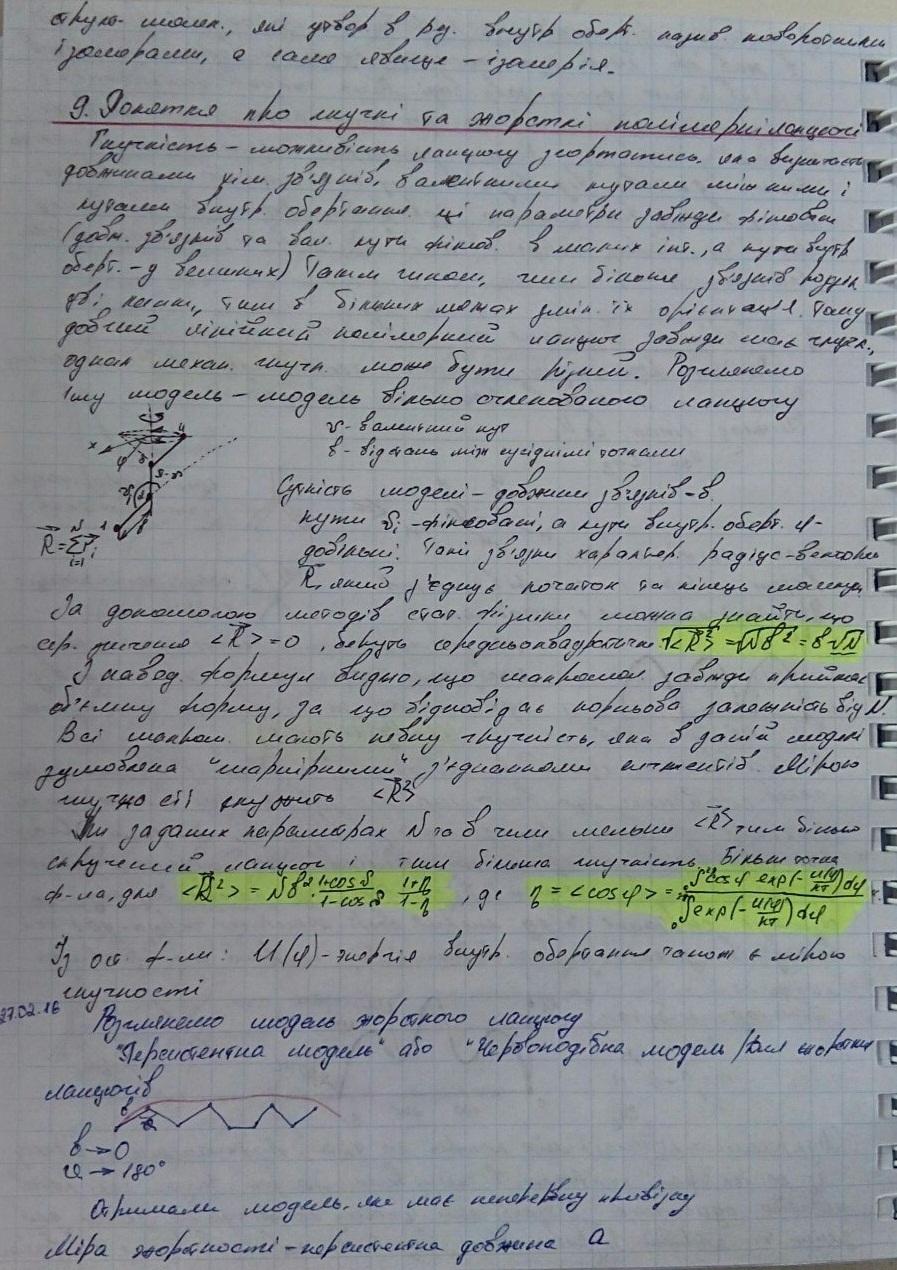 структ. молек., які утвор. в рез. внутр. оберт. назив. поворотними
ізомерами, а саме явище – ізомерія.
9. Поняття про гнучкі та жорсткі полімерні ланцюги
Гнучкість – можливість ланцюгу згортатись, яка визначаєть
довжинами хім. зв'язків, валентними кутами між ними і
кутами внутр. обертання. Ці параметри завжди фіксован
(довж. зв'язків та вал. кути фіксов. в малих інт., а кути внутр
оберт. – у великих) Таким чином, чим більше зв'язків
тим в більших межах змін. їх орієнтація. Тому
довгий лінійний полімерний ланцюг завжди має гнучк.,
однак механ. гнучк. може бути різний. Розглянемо
іншу модель – модель вільно счленованого ланцюгу
γ - валентний кут
b - відстань між сусідніми точками
Сутність моделі – довжини зв'язків – b,
кути γi - фіксовані, а кути внутр. оберт. φ -
довільні. Такі зв'язки характер. радіус-вектором
R, який з'єднує початок та кінець молекули
R⃗ = Σ r⃗i
i=1
N
За допомогою методів стат. фізики можна знайти, що
сер. значення <R⃗> = 0, беруть середньоквадратичне √<R⃗²> = √Nb² = b√N
З навед. формули видно, що макромол. завжди приймає
об'ємну форму, за що відповідає корньова залежність від N.
Всі макром. мають певну гнучкість, яка в даній моделі
зумовлена "шарнірними" з'єднаннями сегментів. Мірою
гнучкості служить <R⃗²>
При заданих параметрах N та b чим меньше <R⃗²> тим більш
скручений ланцюг і тим більша гнучкість. Більш точна
ф-ла, для <R⃗²> = Nb² (1+cosγ)/(1-cosγ) · (1+η)/(1-η), де η = <cosφ> = ∫cosφ exp(-U(φ)/kT)dφ / ∫exp(-U(φ)/kT)dφ
Із ост. ф-ли: U(φ) - энергія внутр. обертання також є мірою
гнучності
27.02.16
Розглянемо модель жорсткого ланцюгу
"Персистентна модель" або "Червоподібна модель /для жорстких
ланцюгів
b → 0
→ 180°
Отримали модель, яка має неперервну кривізну
Міра жорсткості – персистентна довжина a